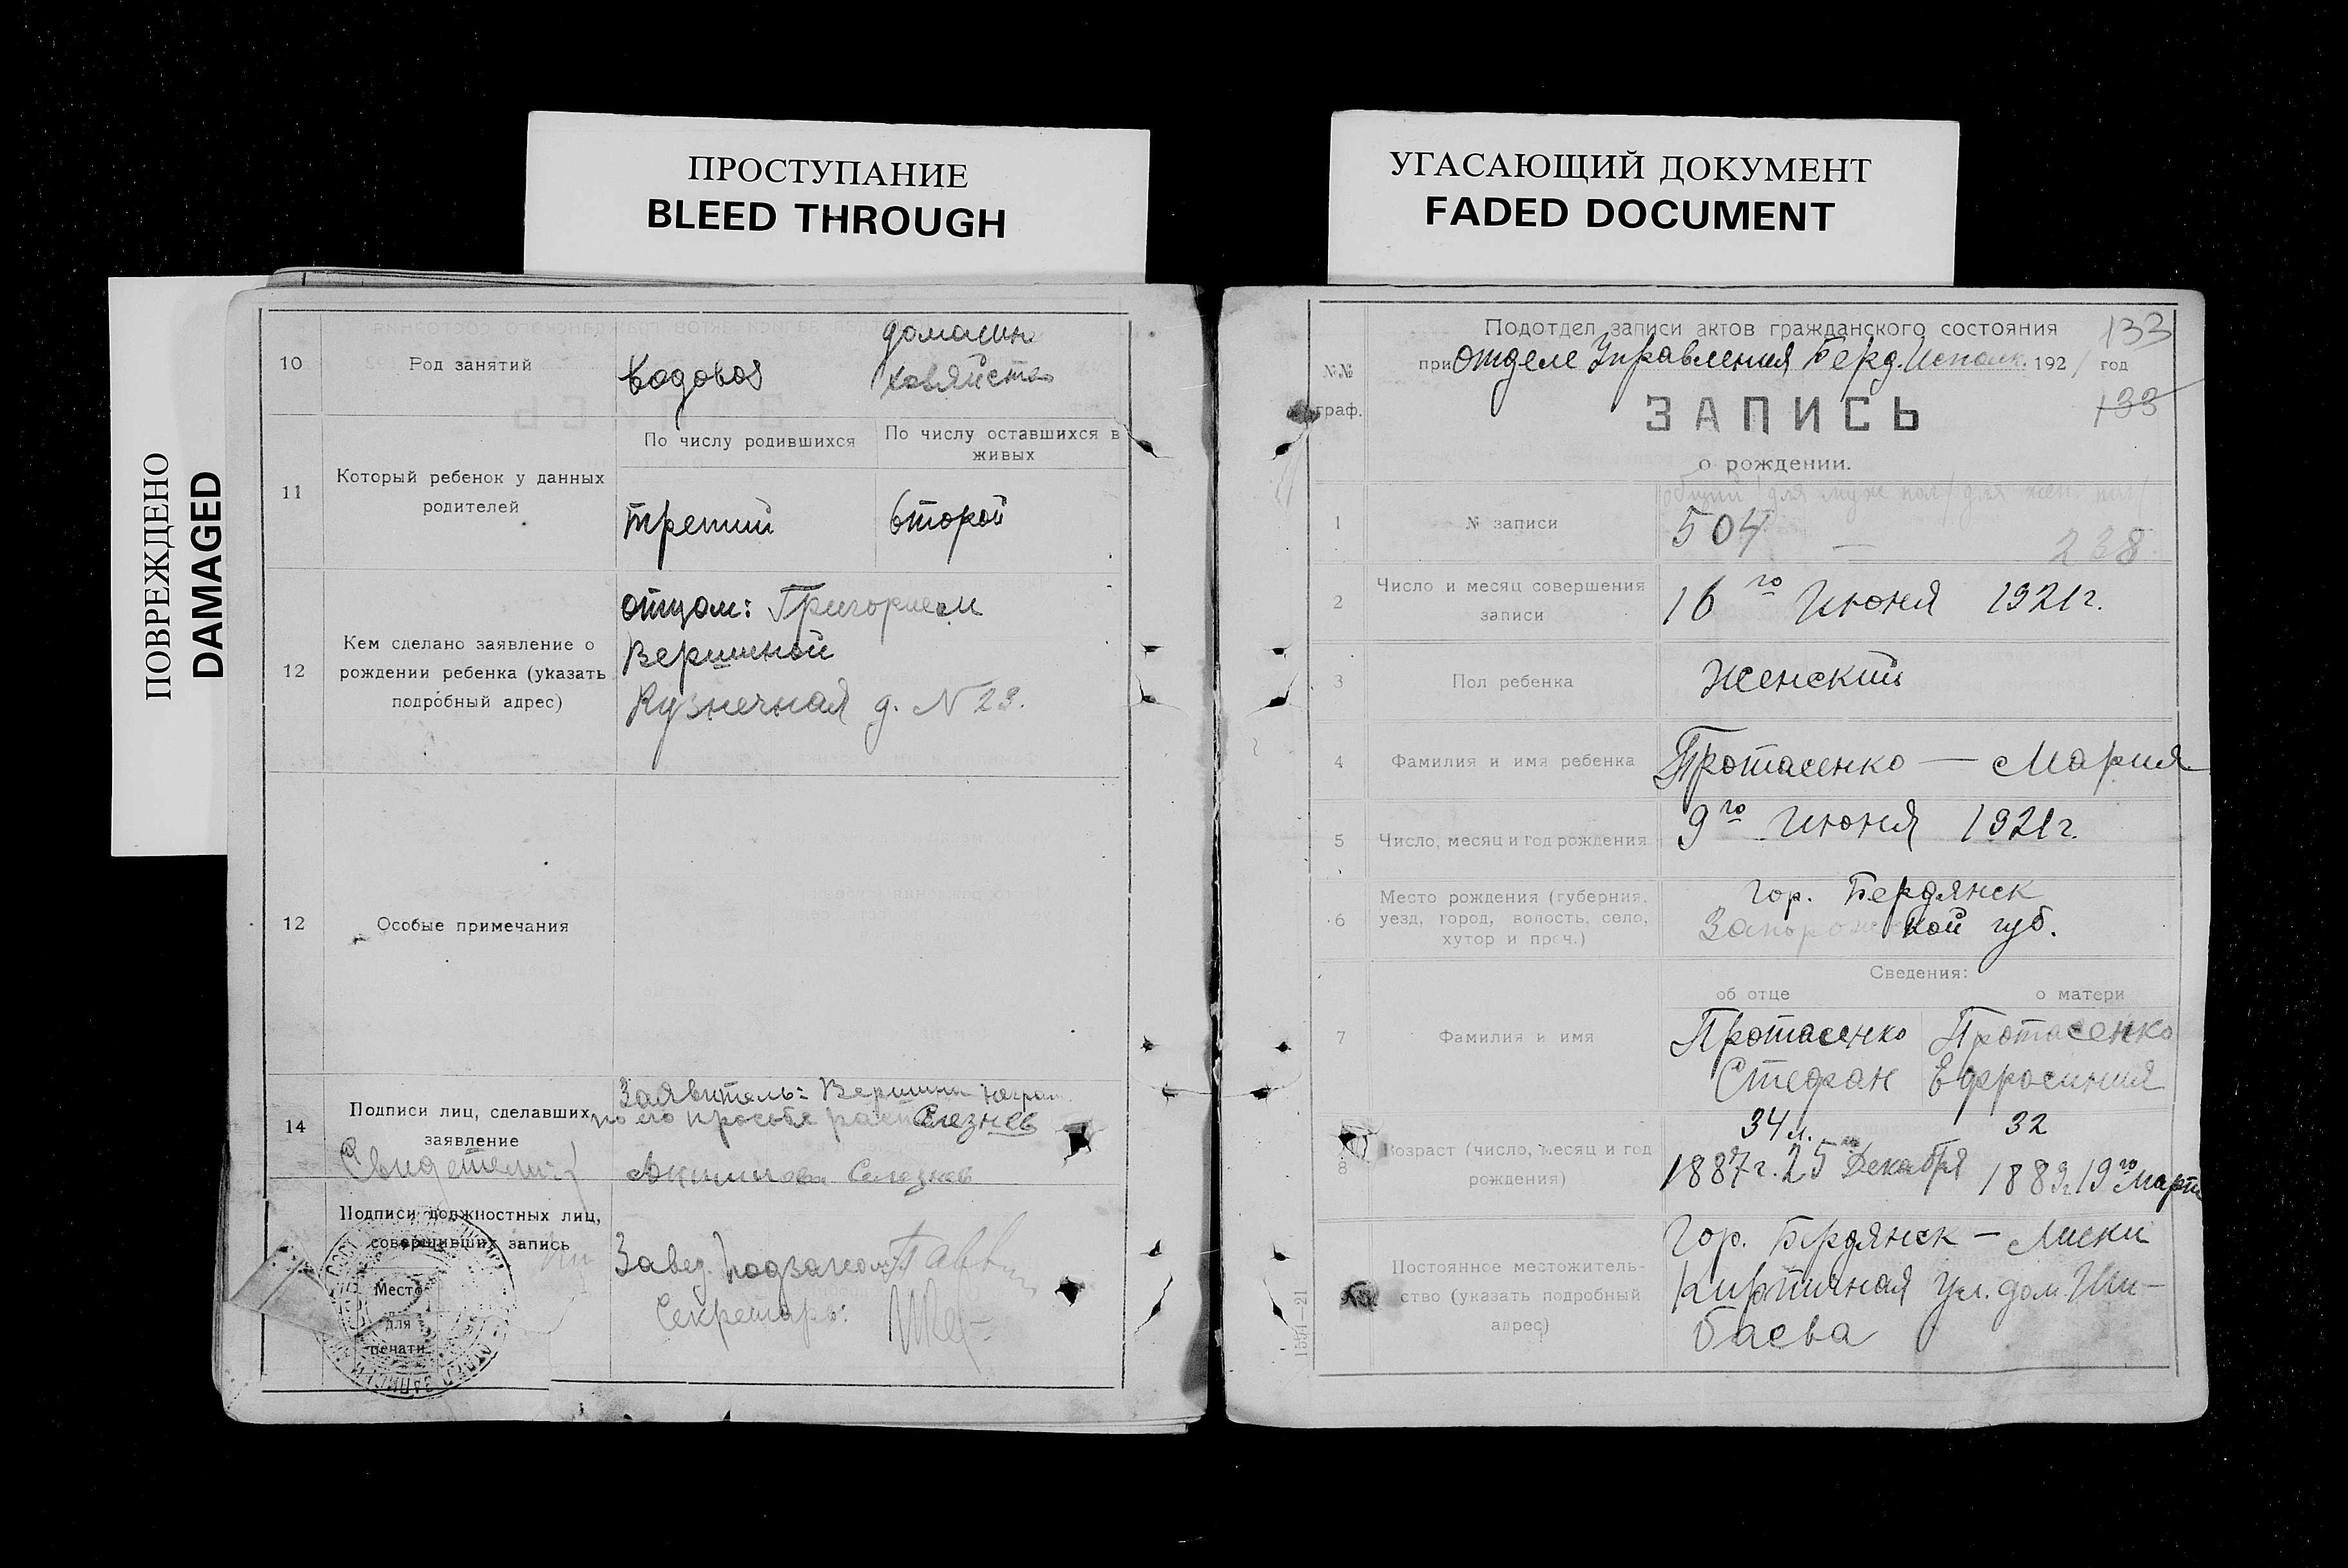 ПРОСТУПАНИЕ
BLEED THROUGH
УГАСАЮЩИЙ ДОКУМЕНТ
FADED DOCUMENT
ПОВРЕЖДЕНО
DAMAGED
10
Род занятий
водовоз
домашн.
хозяйство
11
Который ребенок у данных
родителей
По числу родившихся
По числу оставшихся в
живых
третий
второй
12
Кем сделано заявление о
рождении ребенка (указать
подробный адрес)
отцом: Григорием
Вершиной
Кузнечная д. N 23.
12
Особые примечания
14
Подписи лиц, сделавших
заявление
Заявитель: Вершин неграм.
по его просьбе Слезнев
Свидетели:
Подписи должностных лиц,
совершивших запись
Место
для
печати
Завед. подзагсом:
Секретарь:
133
Подотдел записи актов гражданского состояния
при Отделе Управления Берд. Исполк. 1921 год
№№
граф.
133
ЗАПИСЬ
о рождении.
общий / для муж пол / для жен. пол /
1
№ записи
504 — 238
2
Число и месяц совершения
записи
16го Июня 1921г.
3
Пол ребенка
Женский
4
Фамилия и имя ребенка
Протасенко — Мария
5
Число, месяц и год рождения
9го Июня 1921г.
6
Место рождения (губерния,
уезд, город, волость, село,
хутор и проч.)
Гор. Бердянск
Запорожской губ.
Сведения:
об отце
о матери
7
Фамилия и имя
Протасенко
Стефан
Протасенко
Ефросиния
8
Возраст (число, месяц и год
рождения)
34 л.
1887 г. 25 Декабря
32
1889 г. 19го Марта
Постоянное местожитель-
ство (указать подробный
адрес)
Гор. Бердянск — Лиски
Кирпичная ул. дом. Ши-
баева
1594—21